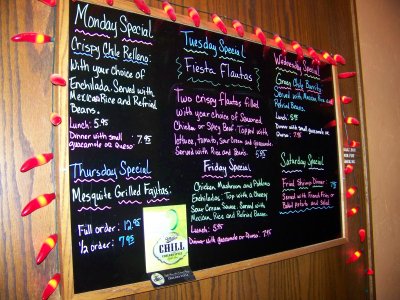 Monday Special
Crispy Chile Relleno:
With your choice of
Enchilada. Served with
Mexican Rice and Refried
Beans.
Lunch: 5.95
Dinner with small 7.95
guacamole or Queso
Tuesday Special
Fiesta Flautas
Two crispy flautas filled
with your choice of Seasoned
Chicken or Spicy Beef. Topped with
lettuce, tomato, sour cream and guacamole.
Served with Rice and Beans. 5.95
Wednesday Special
Green Chile Burrito
Served with Mexican Rice and
Refried Beans.
Lunch: 5.95
Dinner with small
guacamole or Queso 7.95
Thursday Special
Mesquite Grilled Fajitas:
Full order: 12.95
1/2 order: 7.95
CHILL
Friday Special
Chicken, Mushroom and Poblano
Enchiladas. Top with a Cheesy
Sour Cream Sauce. Served with
Mexican Rice and Refried Beans.
Lunch: 5.95
Dinner with guacamole or Queso: 7.95
Saturday Special
Fried Shrimp Dinner
Served with French Fries or
Baked potato and Salad